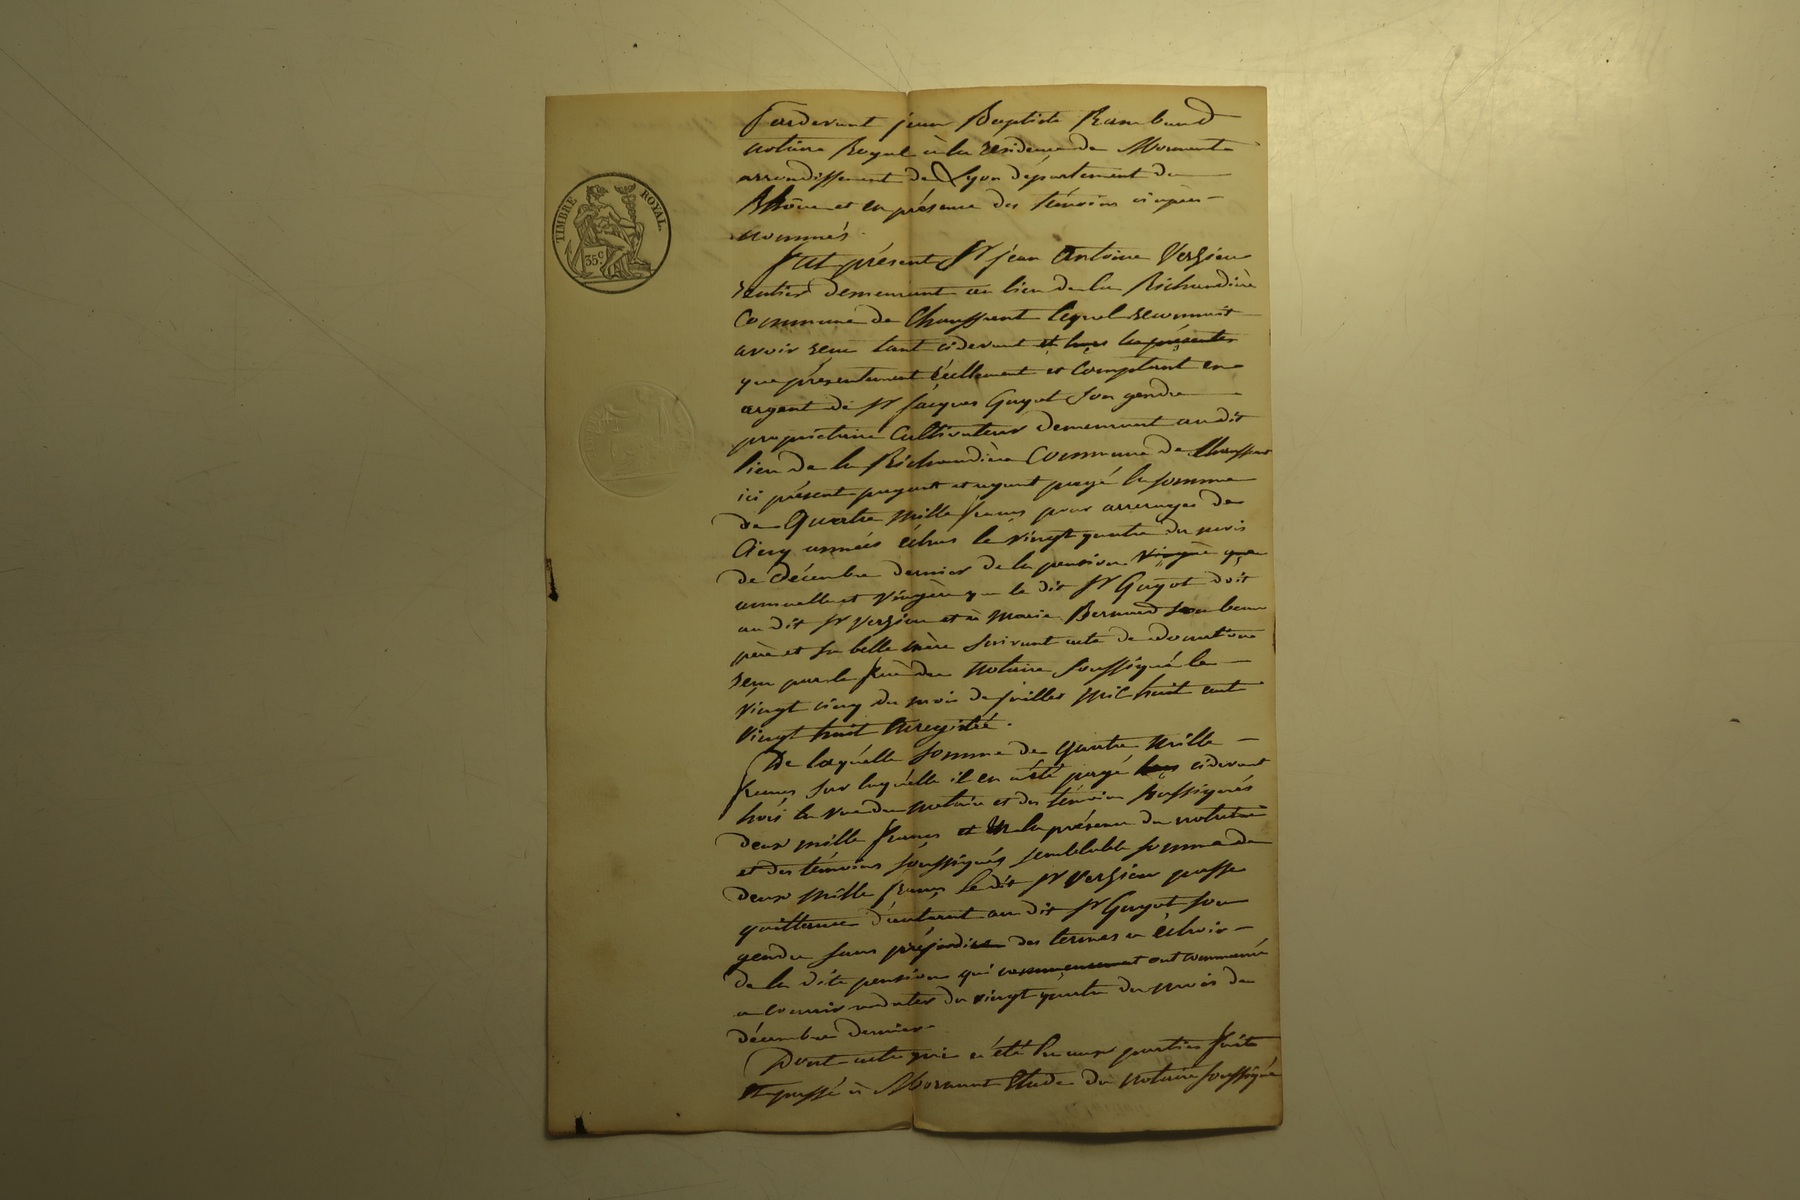 TIMBRE ROYAL
35 c
Pardevant jean Baptiste Rambaud
notaire Royal à la résidence de Mornant
arrondissement de Lyon département du
Rhône et en présence des témoins ci après
nommés.
Fut présent Sr jean Antoine Verzieu
rentier demeurant au lieu de la Richaudière
Commune de Chaussant lequel reconnait
avoir reçu tant cidevant et hors les présentes
que présentement réellement et comptant en
argent de Sr Jacques Guyot son gendre
propriétaire Cultivateur demeurant au dit
lieu de la Richaudière Commune de Chaussant
ici présent payant et ayant payé la somme
de Quatre mille francs pour arrerages de
Cinq années échus le vingt quatre du mois
de décembre dernier de la pension viagère que
annuelle et viagère que le dit Sr Guyot doit
au dit Sr Verzieu et à Marie Bernard son beau
père et sa belle mère suivant acte de donation
reçu par le père du notaire soussigné le
vingt cinq du mois de juillet mil huit cent
vingt huit enregistré.
De laquelle somme de quatre mille
francs sur laquelle il en a été payé hors cidevant
hors la vue du notaire et des témoins soussignés
deux mille francs et en la présence du notaire
et des témoins soussignés semblable somme de
deux mille francs le dit Sr Verzieu passe
quittance d'autant au dit Sr Guyot son
gendre sans préjudice des termes à échoir
de la dite pension qui commencement ont commencé
a courir a dater du vingt quatre du mois de
décembre dernier.
Dont acte qui a été lu aux parties fait
et passé à Mornant Etude du notaire soussigné